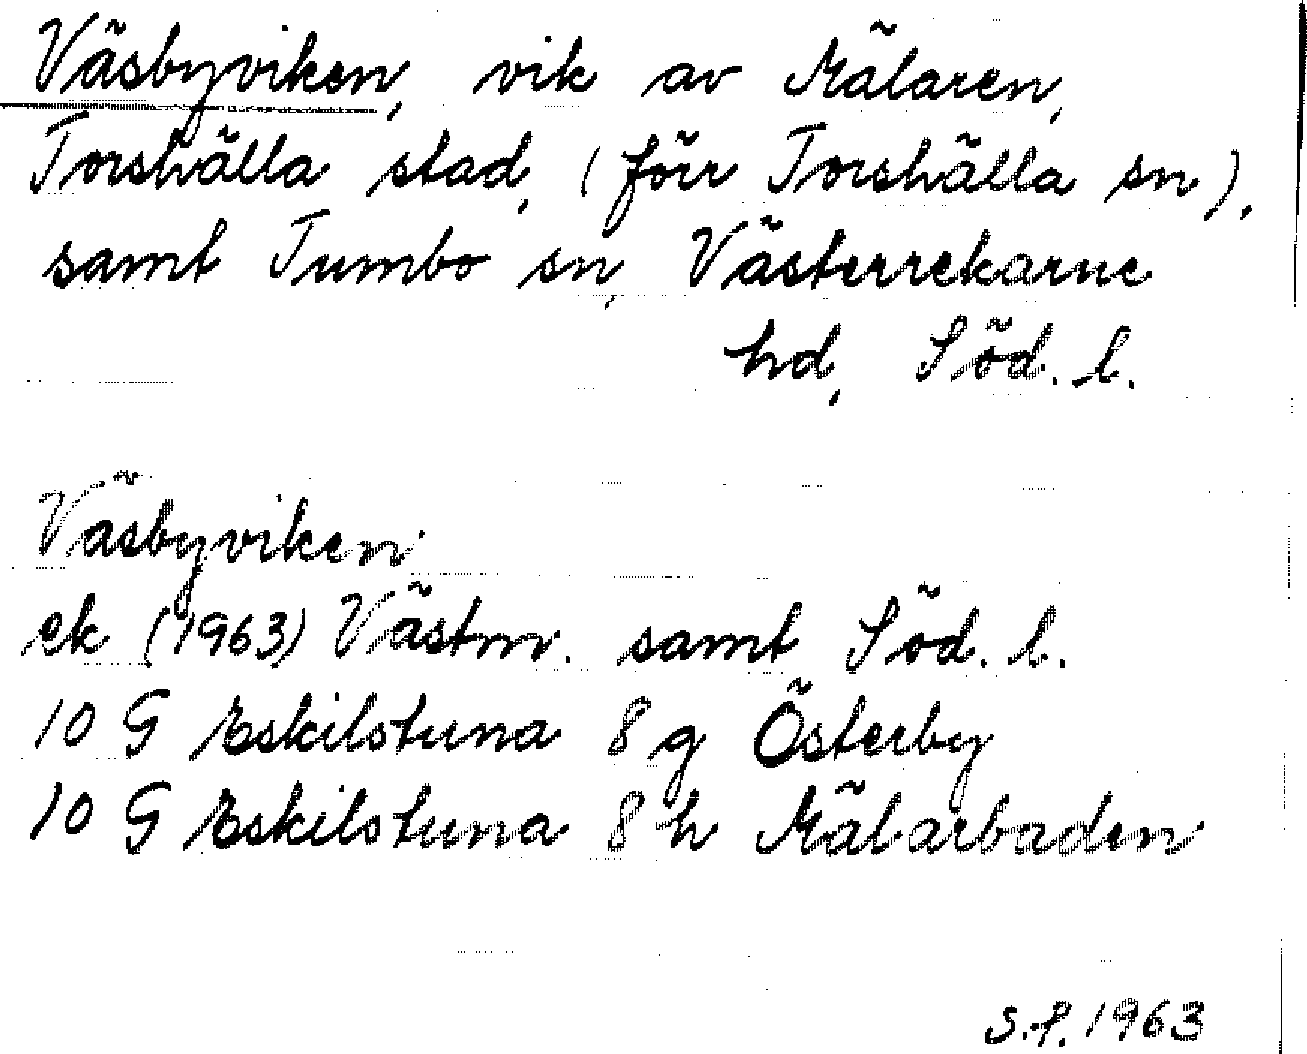 Väsbyviken, vik av Mälaren,
Torshälla stad, (förr Torshälla sn),
samt Tumbo sn, Västerrekarne
hd, Söd. l.
Väsbyviken
ek (1963) Västm. samt Söd. l.
10 G Eskilstuna 8 g Österby
10 G Eskilstuna 8 h Mälarbaden
S.P. 1963